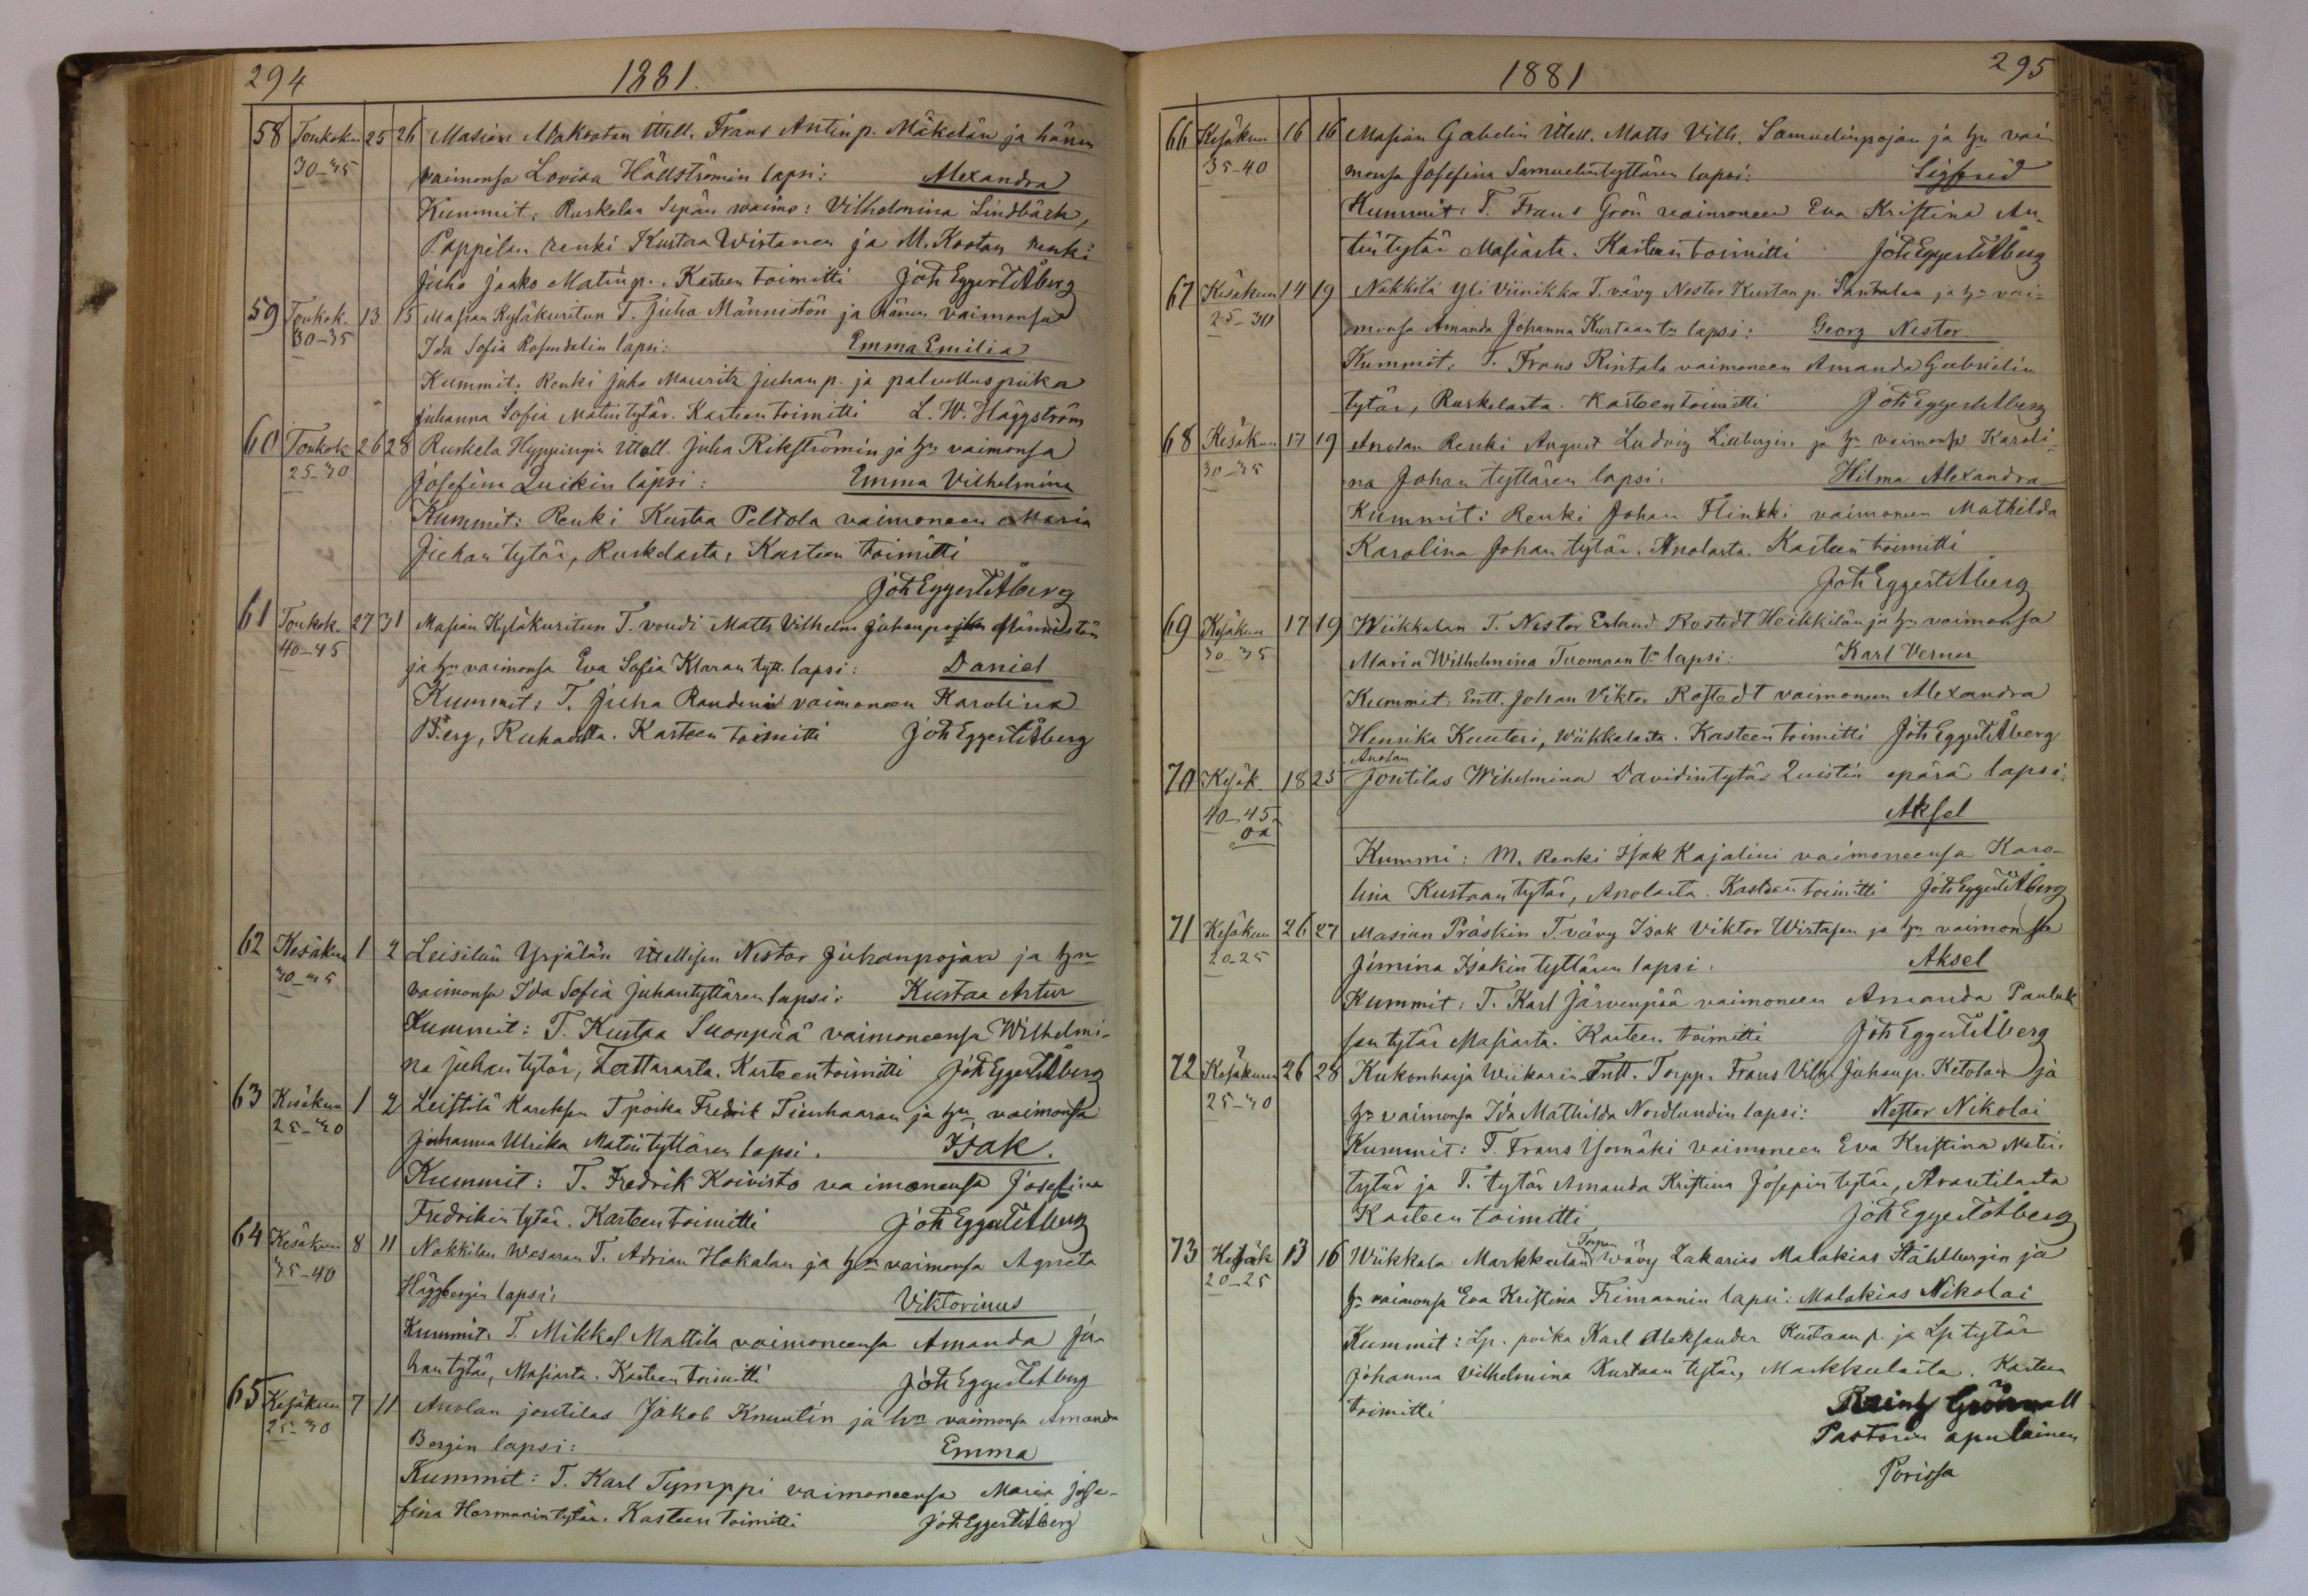 294
1881.
58 Toukokuu 25 26 Masian Makootan Itell. Frans Antinp. Mäkelän ja hänen
30–35 vaimonsa Lovisa Hällströmin lapsi: Alexandra
Kummit: Ruskelan Sepän waimo: Vilhelmina Lindbäck,
Pappilan renki Kustaa Wirtanen ja M. Kootan renki
Juho Jaako Matinp. Kasteen toimitti Joh Eggert Åberg
59 Toukok. 13 15 Masian Kyläkuritun T. Juha Männistön ja hänen vaimonsa
30–35 Ida Sofia Rosendalin lapsi: Emma Emilia
Kummit. Renki Juha Mauritz Juhanp. ja palvelluspiika
Juhanna Sofia Matintytär. Kasteen toimitti L. W. Häggström
60 Toukok 26 28 Ruskela Hyppingin Itell. Juha Rikströmin ja hn vaimonsa
25–30 Josefina Quikin lapsi: Emma Vilhelmina
Kummit: Renki Kustaa Peltola vaimoneen Maria
Juhan tytär, Ruskelasta, Kasteen toimitti
Joh Eggert Åberg
61 Toukok. 27 31 Masian Kyläkuritun T. voudi Matts Vilhelm Juhanpojan Männistön
40–45 ja hn vaimonsa Eva Sofia Klaran tytt. lapsi: Daniel
Kummit: T. Juha Randeni vaimoneen Karolina
Berg, Ruhadtta. Kasteen toimitti Joh Eggert Åberg
62 Kesäkuu 1 2 Leisilän Yrjälän Itellisen Nestor Juhanpojan ja hn
30–35 vaimonsa Ida Sofia Juhantyttären lapsi: Kustaa Artur
Kummit: T. Kustaa Suonpää vaimoneensa Wilhelmi-
na Juhan tytär, Lattarasta. Kasteen toimitti Joh Eggert Åberg
63 Kesäkuu 1 2 Leistilä Kareksen T poika Fredrik Tienhaaran ja hn vaimonsa
25–30 Johanna Ulrika Matin tyttären lapsi. Isak.
Kummit: T. Fredrik Koivisto vaimoneensa Josefina
Fredrikin tytär. Kasteen toimitti Joh Eggert Åberg
64 Kesäkuu 8 11 Nakkilan Wasaran T. Adrian Hakalan ja hn vaimonsa Agneta
35–40 Häggbergin lapsi: Viktorinus
Kummit. T. Mikkel Mattila vaimoneensa Amanda Ju-
hantytär, Masiasta. Kasteen toimitti Joh Eggert Åberg
65 Kesäkuu 7 11 Anolan joutilas Jakob Knuutin ja hn vaimonsa Amanda
25–30 Bergin lapsi: Emma
Kummit: T. Karl Tymppi vaimoneensa Maria Jose-
fina Hermannintytär. Kasteen toimitti Joh Eggert Åberg
1881
295
66 Kesäkuu 16 16 Masian Gabelin Itell. Matts Vilh. Samuelinpojan ja hn vai
35–40 monsa Josefina Samuelintyttären lapsi: Sigfrid
Kummit: T. Frans Grön vaimoneen Eva Kristina An-
tin tytär Masiasta. Kasteen toimitti Joh Eggert Åberg
67 Kesäkuu 14 19 Nakkila Yli Viinikka T. vävy Nestor Kustan p. Santalan ja hn vai-
25–30 monsa Amanda Johanna Kustaan tn lapsi: Georg Nestor.
Kummit: T. Frans Rintala vaimoneen Amanda Gabrielin
tytär, Ruskelasta. Kasteen toimitti Joh Eggert Åberg
68 Kesäkuu 17 19 Anolan Renki August Ludvig Lillbergin ja hn vaimonsa Karoli-
30–35 na Johan tyttären lapsi: Hilma Alexandra
Kummit: Renki Johan Flinkki vaimoneen Mathilda
Karolina Johan tytär, Anolasta. Kasteen toimitti
Joh Eggert Åberg
69 Kesäkuu 17 19 Wiikkalan T. Nestor Erland Rostedt Heikkilän ja hn vaimonsa
30–35 Maria Wilhelmina Tuomaan tn lapsi: Karl Verner
Kummit: Entt. Johan Viktor Rostedt vaimoneen Alexandra
Henrika Kuuteri, Wiikkalasta. Kasteen toimitti Joh Eggert Åberg
Anolan
70 Kesäk. 18 25 Joutilas Wihelmina Davidintytär Quistin epärä lapsi:
40–45 Aksel
oä
Kummi: M. Renki Isak Kajalini vaimoneensa Karo-
lina Kustaan tytär, Anolasta. Kasteen toimitti Joh Eggert Åberg
71 Kesäkuu 26 27 Masian Präskin T. vävy Isak Viktor Wirtasen ja hn vaimonsa
20 25 Jimina Isakin tyttären lapsi. Aksel
Kummit: T. Karl Järvenpää vaimoneen Amanda Pauluk
sen tytär Masiasta. Kasteen toimitti Joh Eggert Åberg
72 Kesäkuu 26 28 Kukonharja Wiikarin Entt. Torpp. Frans Vilh. Juhanp. Ketolan ja
25–30 hn vaimonsa Ida Mathilda Nordlundin lapsi: Nestor Nikolai
Kummit: T. Frans Isomäki vaimoneen Eva Kristina Matin
tytär ja T. tytär Amanda Kristina Josepin tytär, Arantilasta
Kasteen toimitti Joh Eggert Åberg
Torpan
73 Kesäk 13 16 Wiikkala Markkulan wävy Zakarias Malakias Ståhlbergin ja
20–25 hn vaimonsa Eva Kristina Freimannin lapsi: Malakias Nikolai
Kummit: Lp. poika Karl Aleksander Kustaan p. ja Lp tytär
Johanna Vilhelmina Kustaan tytär, Markkulasta. Kasteen
toimitti Reinh Grönvall
Pastorin apulainen
Porissa